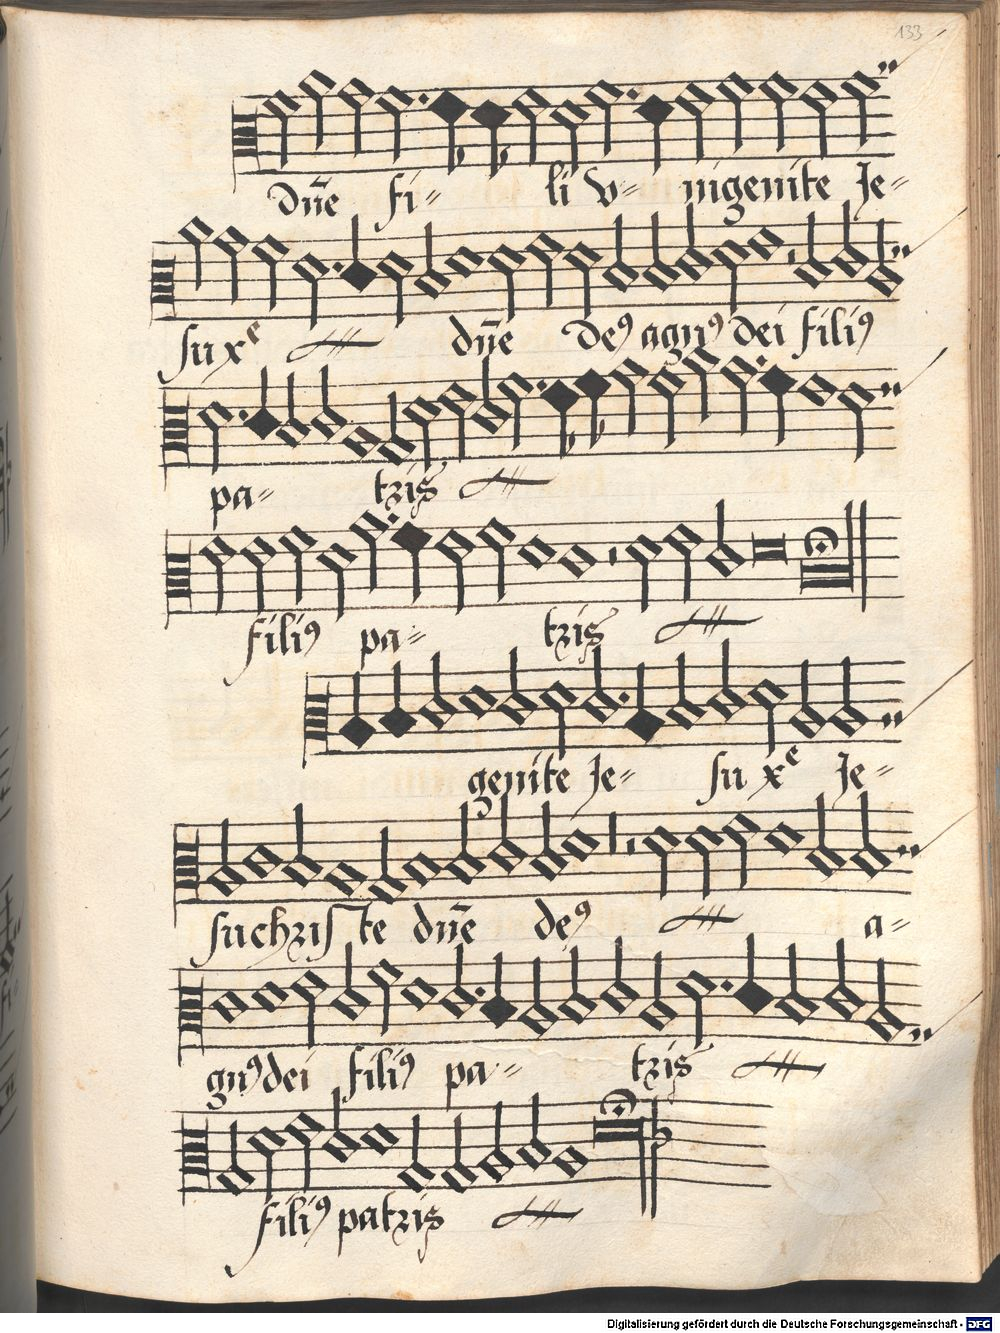 133
Dn̄e fi- li v- nigenite Je-
su xᵉ dn̄e De9 agn9 dei fili9
pa- tris
fili9 pa- tris
genite Je- su xᵉ Je-
su christe dn̄e de9 a-
gn9 dei fili9 pa- tris
fili9 patris
Digitalisierung gefördert durch die Deutsche Forschungsgemeinschaft - DFG